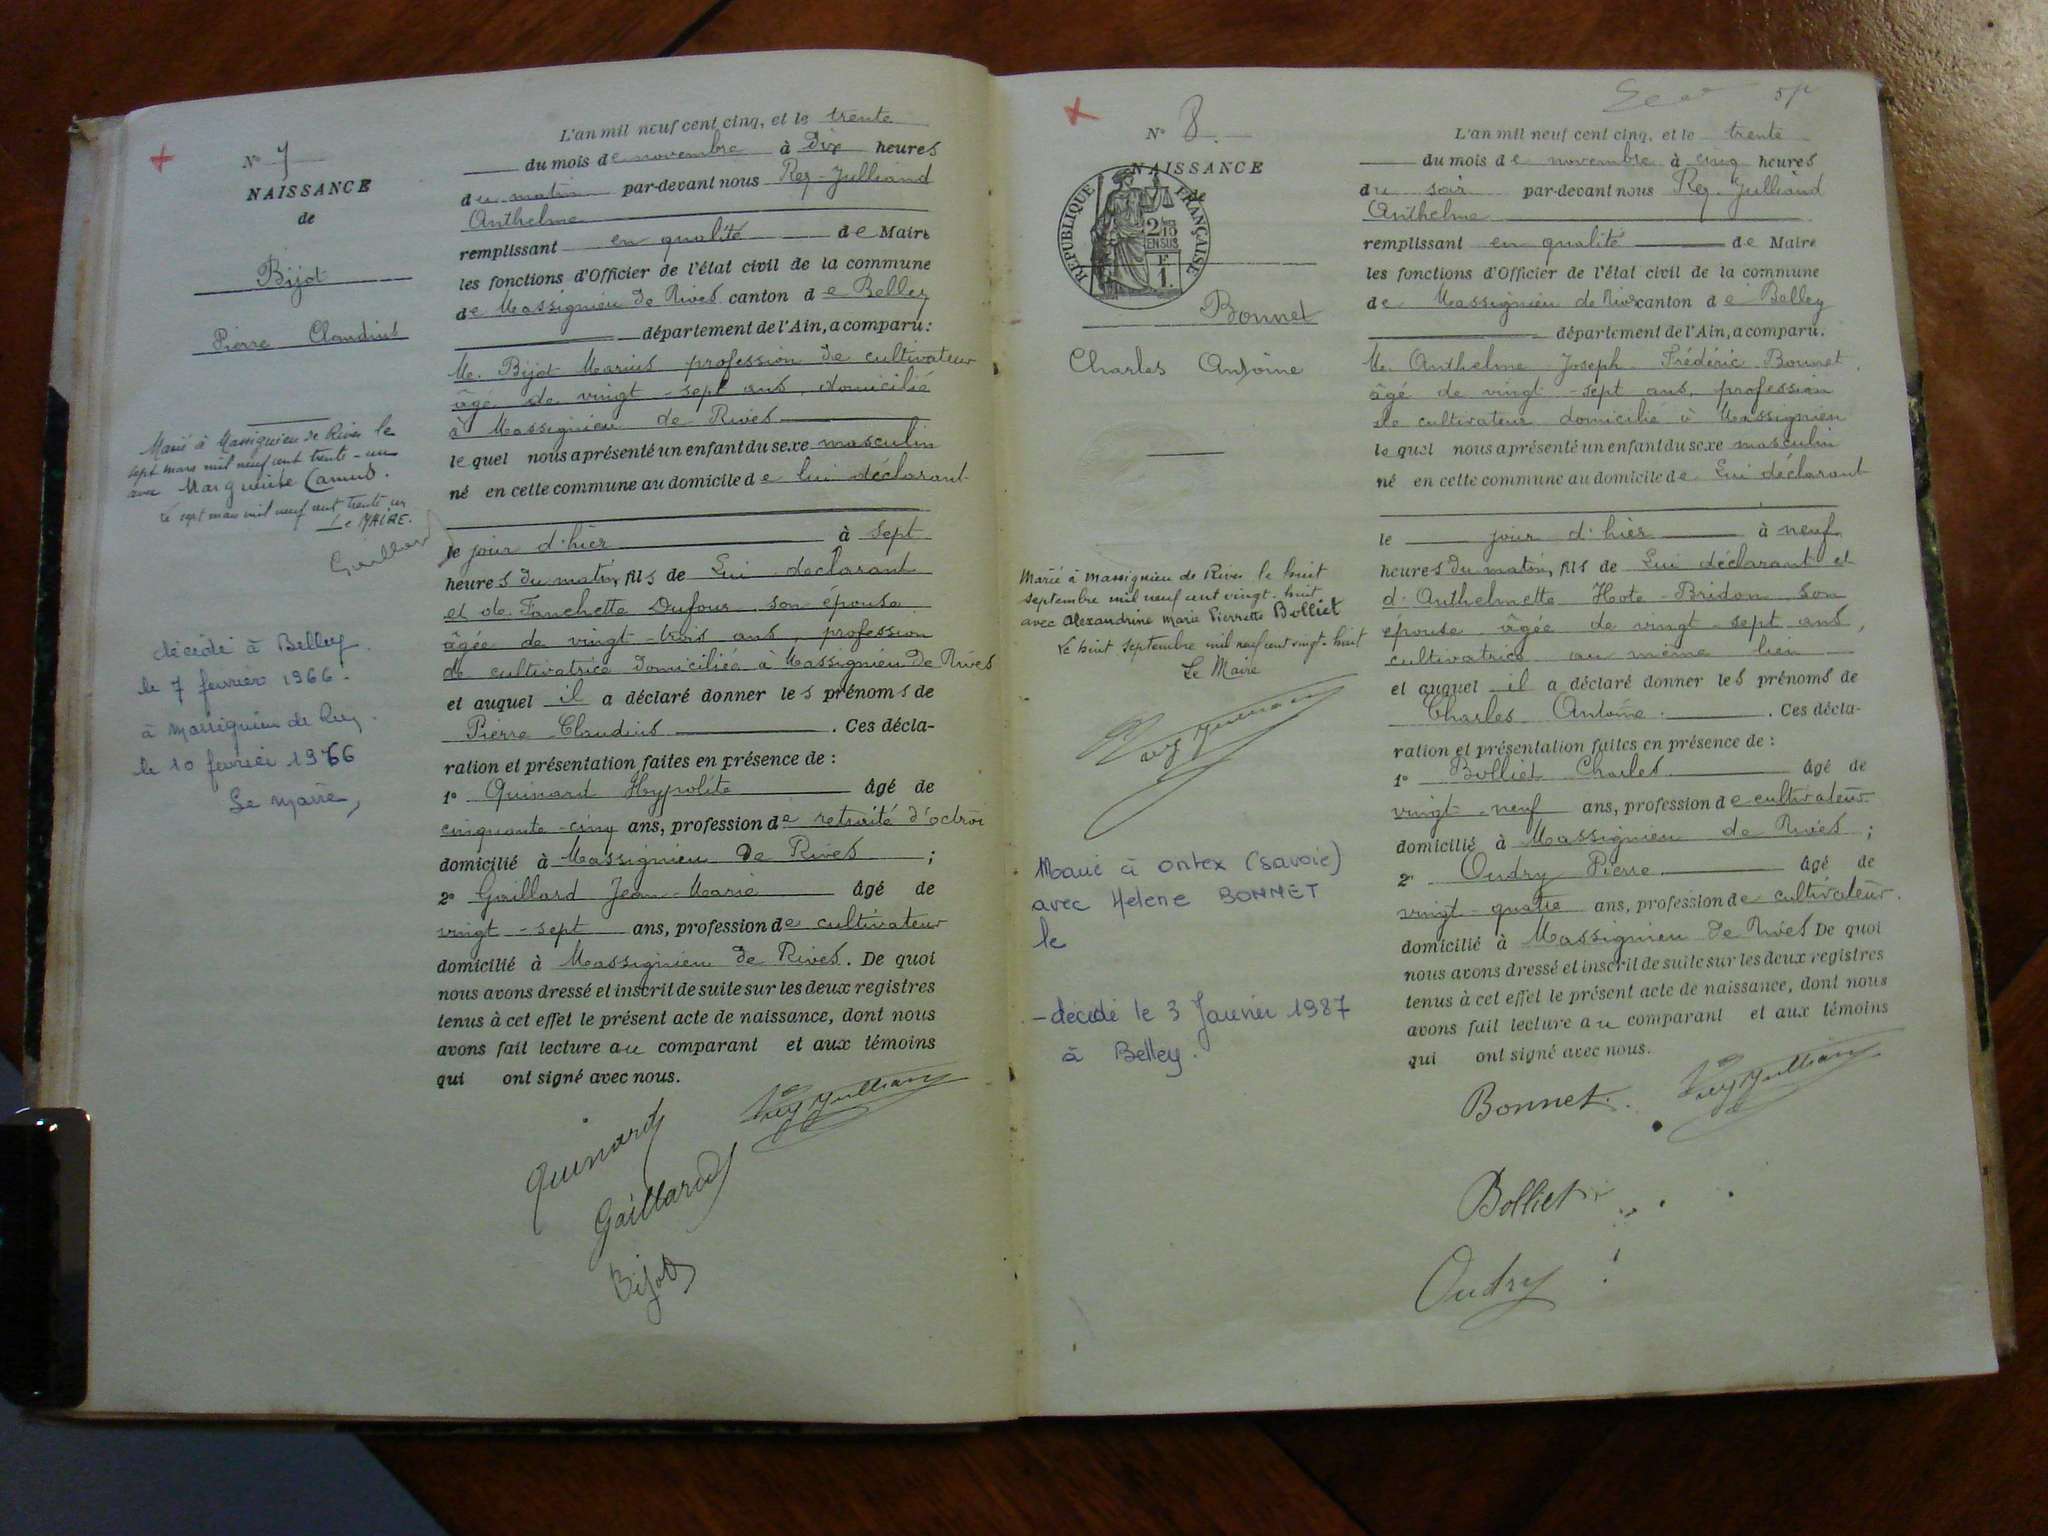 N° 7
NAISSANCE
de
Bijot
Pierre Claudius
Marié à Massignieu de Rives le
sept mars mil neuf cent trente-un
avec Marguerite Camus.
Le sept mars mil neuf cent trente un
Le MAIRE.
Gaillard
décédé à Belley
le 7 fevrier 1966.
à Massignieu de Rives
le 10 fevrier 1966
Le Maire,
L'an mil neuf cent cinq, et le trente
du mois de novembre à Dix heures
du matin par-devant nous Rey-Julliand
Anthelme
remplissant en qualité de Maire
les fonctions d'Officier de l'état civil de la commune
de Massignieu de Rives canton de Belley
département de l'Ain, a comparu :
M. Bijot Marius profession de cultivateur
âgé de vingt-sept ans, domicilié
à Massignieu de Rives
lequel nous a présenté un enfant du sexe masculin
né en cette commune au domicile de Lui déclarant
le jour d'hier à sept
heures du matin, fils de Lui déclarant
et de Fanchette Dufour son épouse
âgée de vingt-trois ans, profession
de cultivatrice domiciliée à Massignieu de Rives
et auquel il a déclaré donner les prénoms de
Pierre Claudius . Ces décla-
ration et présentation faites en présence de :
1° Quinard Hypolite âgé de
cinquante-cinq ans, profession de retraité d'octroi
domicilié à Massignieu de Rives ;
2° Gaillard Jean-Marie âgé de
vingt-sept ans, profession de cultivateur
domicilié à Massignieu de Rives. De quoi
nous avons dressé et inscrit de suite sur les deux registres
tenus à cet effet le présent acte de naissance, dont nous
avons fait lecture au comparant et aux témoins
qui ont signé avec nous.
Rey Julliand
Quinard
Gaillard
Bijot
N° 8
NAISSANCE
de
RÉPUBLIQUE FRANÇAISE
2/10
EN SUS
1 F.
Bonnet
Charles Antoine
Marié à Massignieu de Rives le huit
septembre mil neuf cent vingt-huit
avec Alexandrine Marie Pierrette Bolliet
Le huit septembre mil neuf cent vingt-huit
Le Maire
Marié à Ontex (Savoie)
avec Helene BONNET
le
- décédé le 3 Janvier 1987
à Belley.
L'an mil neuf cent cinq, et le trente
du mois de novembre à cinq heures
du soir par-devant nous Rey-Julliand
Anthelme
remplissant en qualité de Maire
les fonctions d'Officier de l'état civil de la commune
de Massignieu de Rives canton de Belley
département de l'Ain, a comparu.
M. Anthelme Joseph Frédéric Bonnet
âgé de vingt-sept ans, profession
de cultivateur domicilié à Massignieu
lequel nous a présenté un enfant du sexe masculin
né en cette commune au domicile de Lui déclarant
le jour d'hier à neuf
heures du matin, fils de Lui déclarant et
d'Anthelmette Hote-Bridon son
épouse âgée de vingt-sept ans,
cultivatrice au même lieu
et auquel il a déclaré donner les prénoms de
Charles Antoine . Ces décla-
ration et présentation faites en présence de :
1° Bolliet Charles âgé de
vingt-neuf ans, profession de cultivateur
domicilié à Massignieu de Rives ;
2° Oudry Pierre âgé de
vingt-quatre ans, profession de cultivateur.
domicilié à Massignieu de Rives De quoi
nous avons dressé et inscrit de suite sur les deux registres
tenus à cet effet le présent acte de naissance, dont nous
avons fait lecture au comparant et aux témoins
qui ont signé avec nous.
Bonnet. Rey Julliand
Bolliet
Oudry